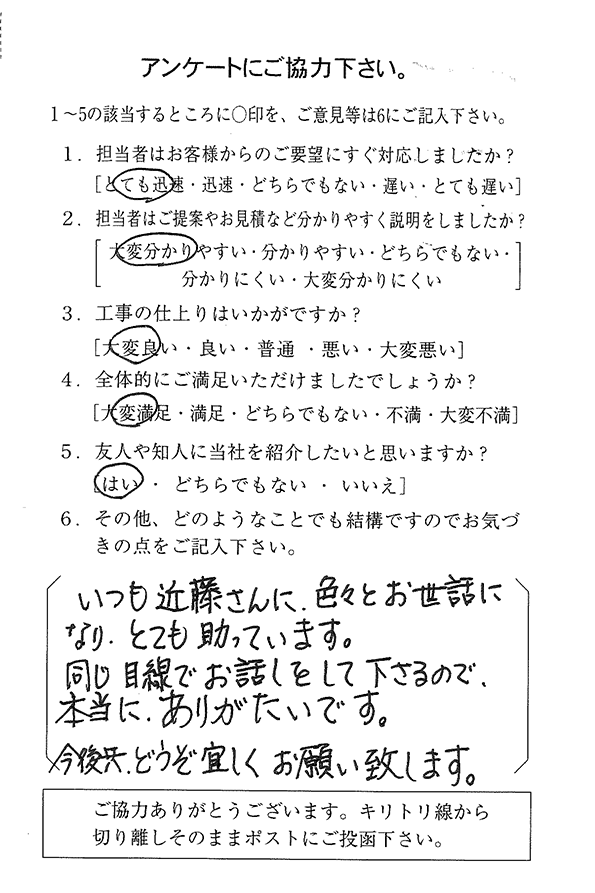 アンケートにご協力下さい。
1～5の該当するところに〇印を、ご意見等は6にご記入下さい。
1．担当者はお客様からのご要望にすぐ対応しましたか？
[とても迅速・迅速・どちらでもない・遅い・とても遅い]
2．担当者はご提案やお見積など分かりやすく説明をしましたか？
[大変分かりやすい・分かりやすい・どちらでもない・
分かりにくい・大変分かりにくい]
3．工事の仕上りはいかがですか？
[大変良い・良い・普通・悪い・大変悪い]
4．全体的にご満足いただけましたでしょうか？
[大変満足・満足・どちらでもない・不満・大変不満]
5．友人や知人に当社を紹介したいと思いますか？
[はい・どちらでもない・いいえ]
6．その他、どのようなことでも結構ですのでお気づ
きの点をご記入下さい。
いつも近藤さんに、色々とお世話に
なり、とても助っています。
同じ目線でお話しをして下さるので、
本当に、ありがたいです。
今後共、どうぞ宜しくお願い致します。
ご協力ありがとうございます。キリトリ線から
切り離しそのままポストにご投函下さい。